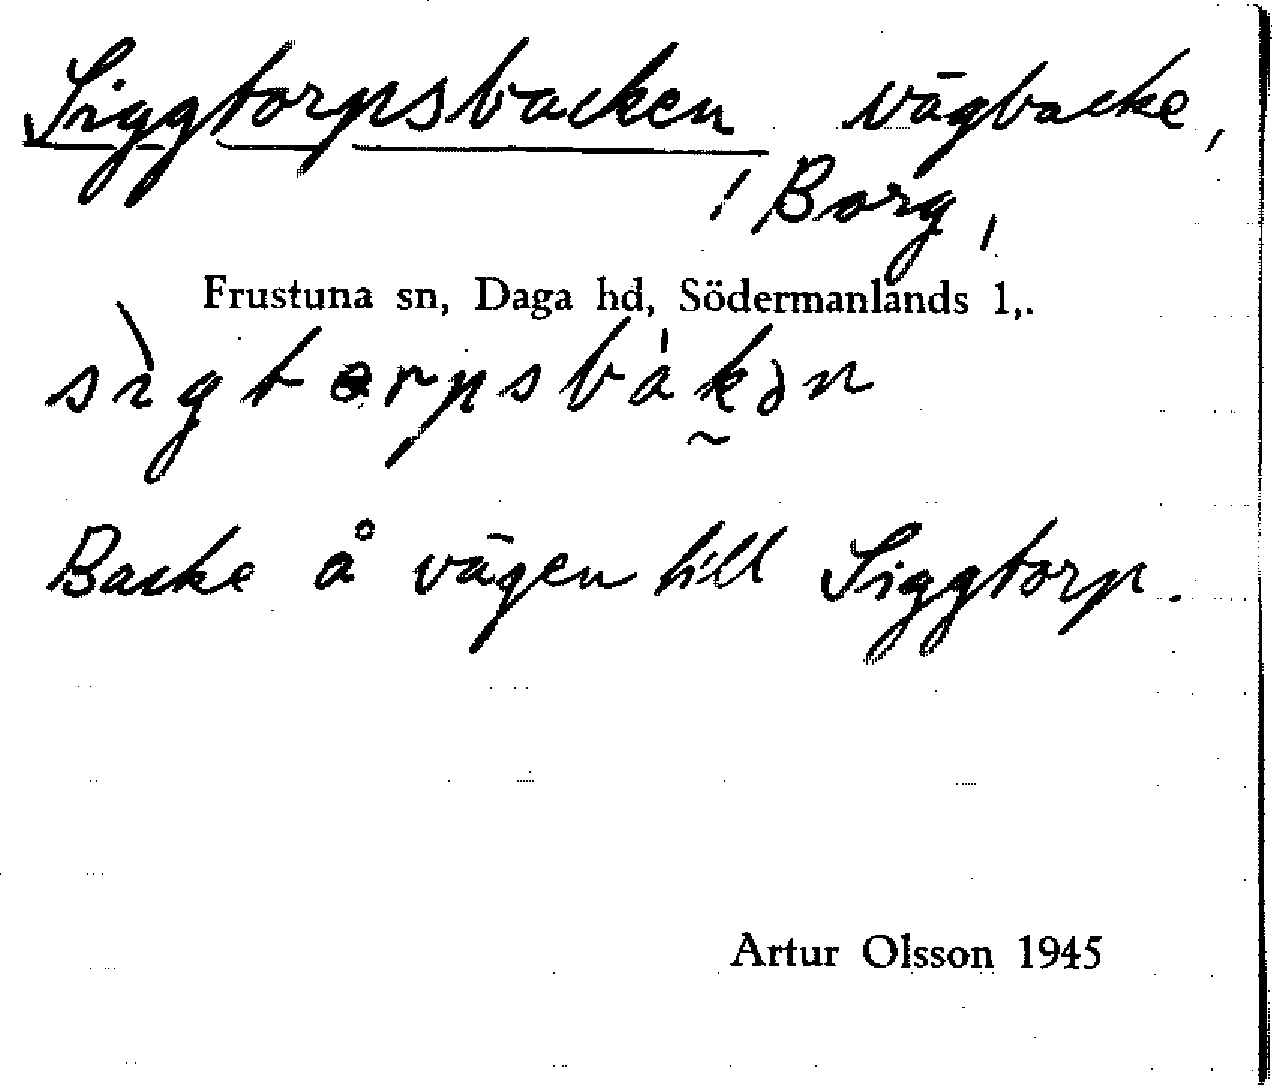 Siggtorpsbacken vägbacke,
/Borg/
Frustuna sn, Daga hd, Södermanlands l,.
sìgtɵrpsbákən
Backe å vägen till Siggtorp.
Artur Olsson 1945